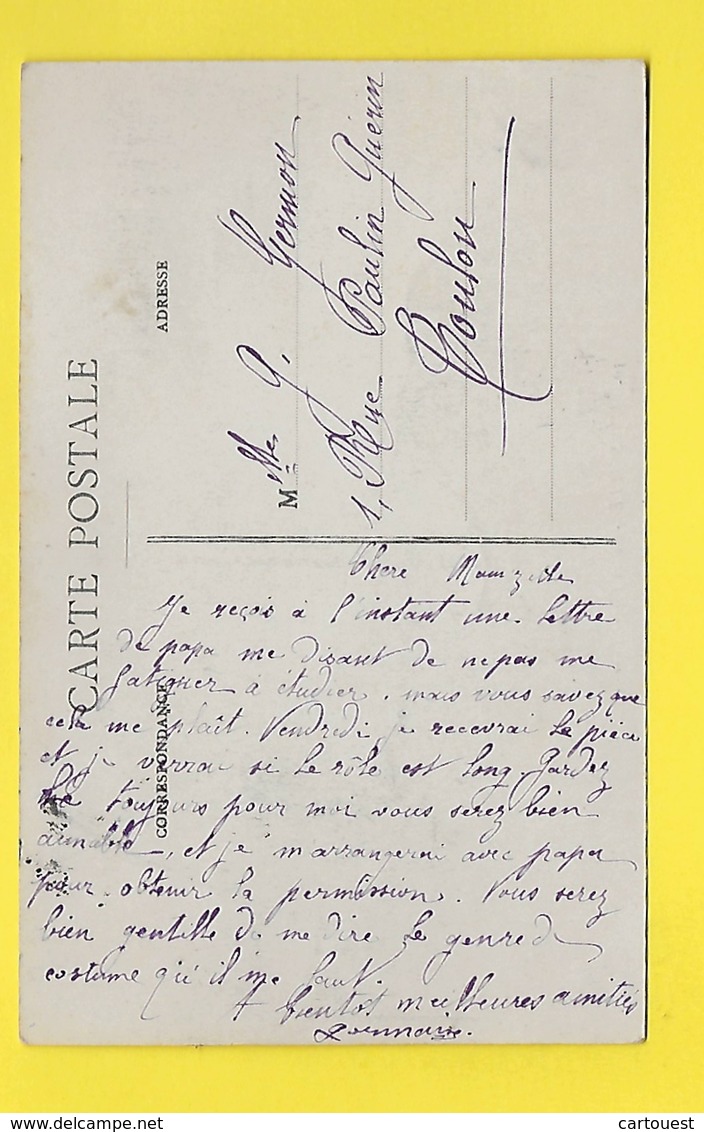 CARTE POSTALE
CORRESPONDANCE
ADRESSE
Mlle G. Germon
1, Rue Paulin Guérin
Toulon
Chere Mamzelle
Je reçois à l'instant une lettre
de papa me disant de ne pas me
fatiguer à étudier, mais vous savez que
cela me plaît. Vendredi je recevrai la pièce
et je verrai si le rôle est long. Gardez
le toujours pour moi vous serez bien
aimable, et je m'arrangerai avec papa
pour obtenir la permission. Vous serez
bien gentille de me dire le genre de
costume qu'il me faut.
A bientot meilleures amitiés
Germaine.
delcampe.net
cartouest